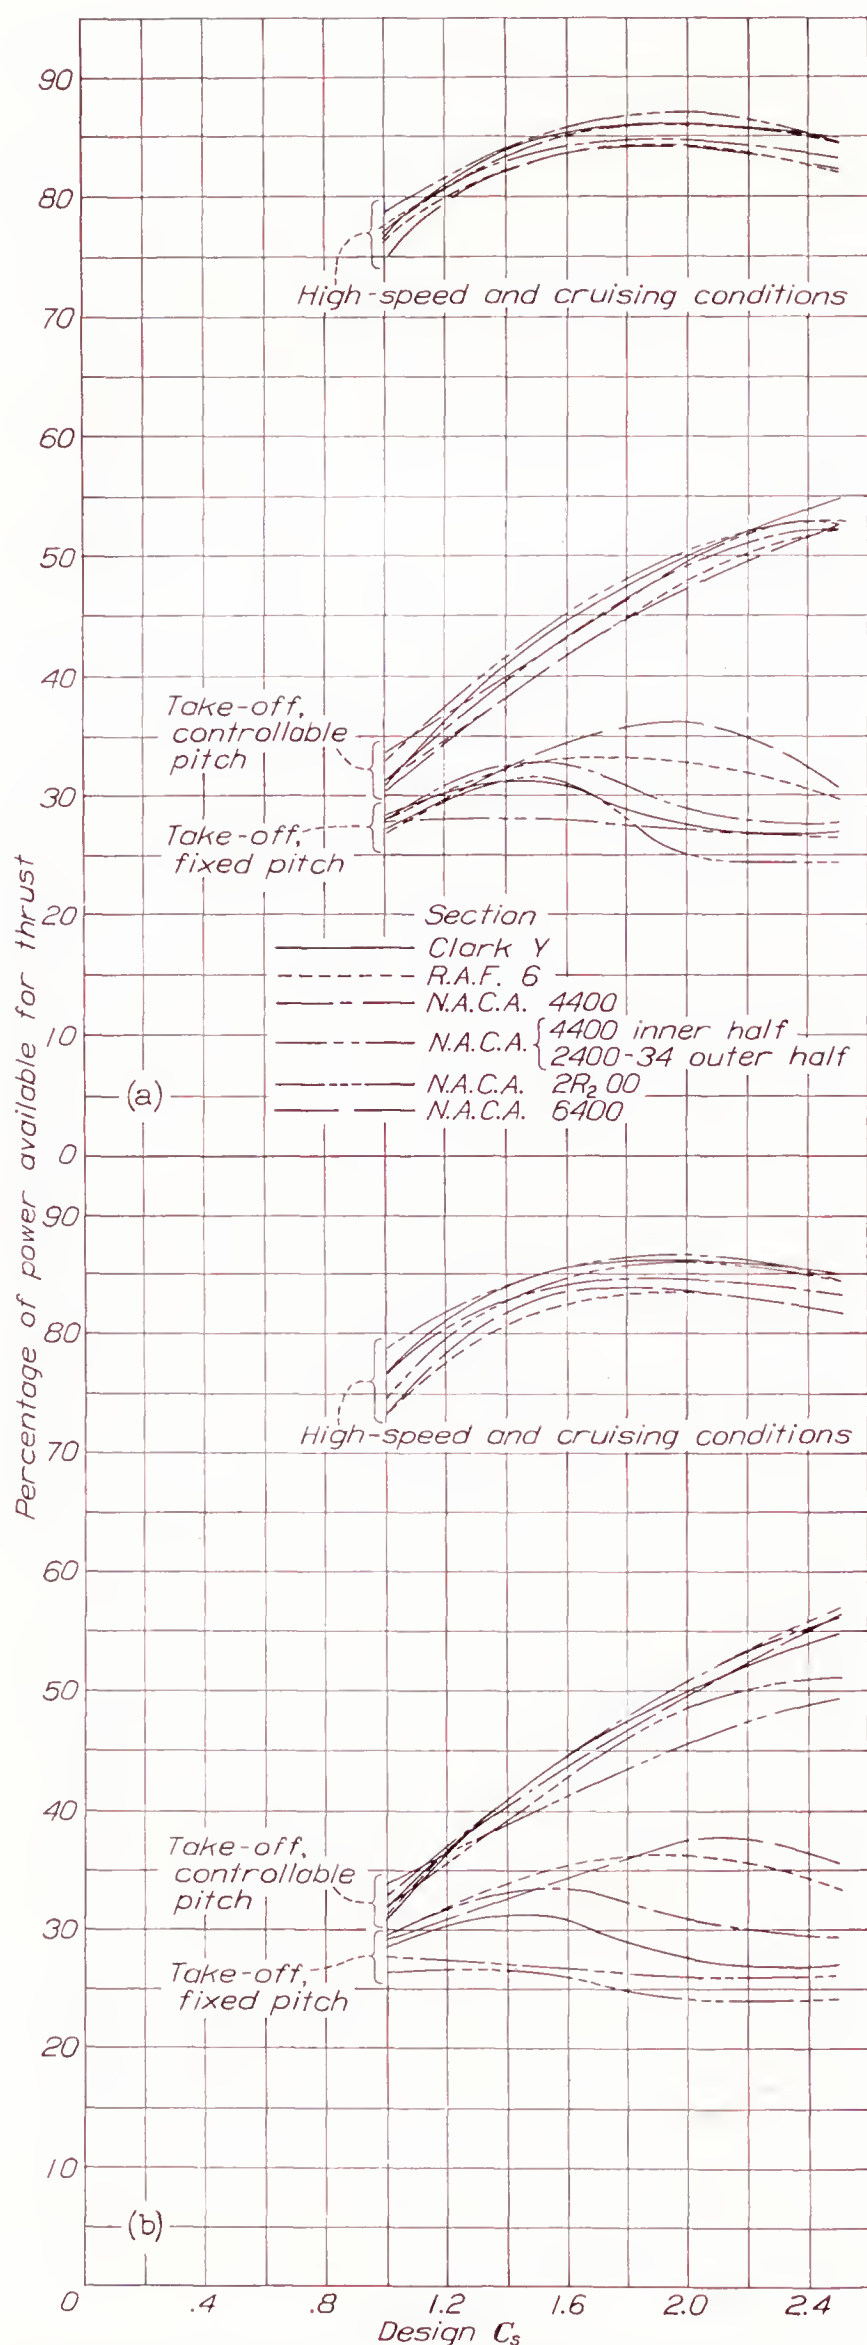 90
80
High-speed and cruising conditions
70
60
50
40
Take-off,
controllable
pitch
30
Take-off,
fixed pitch
20
Section
Clark Y
R.A.F. 6
N.A.C.A. 4400
10
N.A.C.A. { 4400 inner half
2400-34 outer half
(a)
N.A.C.A. 2R₂ 00
N.A.C.A. 6400
0
Percentage of power available for thrust
90
80
High-speed and cruising conditions
70
60
50
40
Take-off,
controllable
pitch
30
Take-off,
fixed pitch
20
10
(b)
0
0 .4 .8 1.2 1.6 2.0 2.4
Design Cₛ